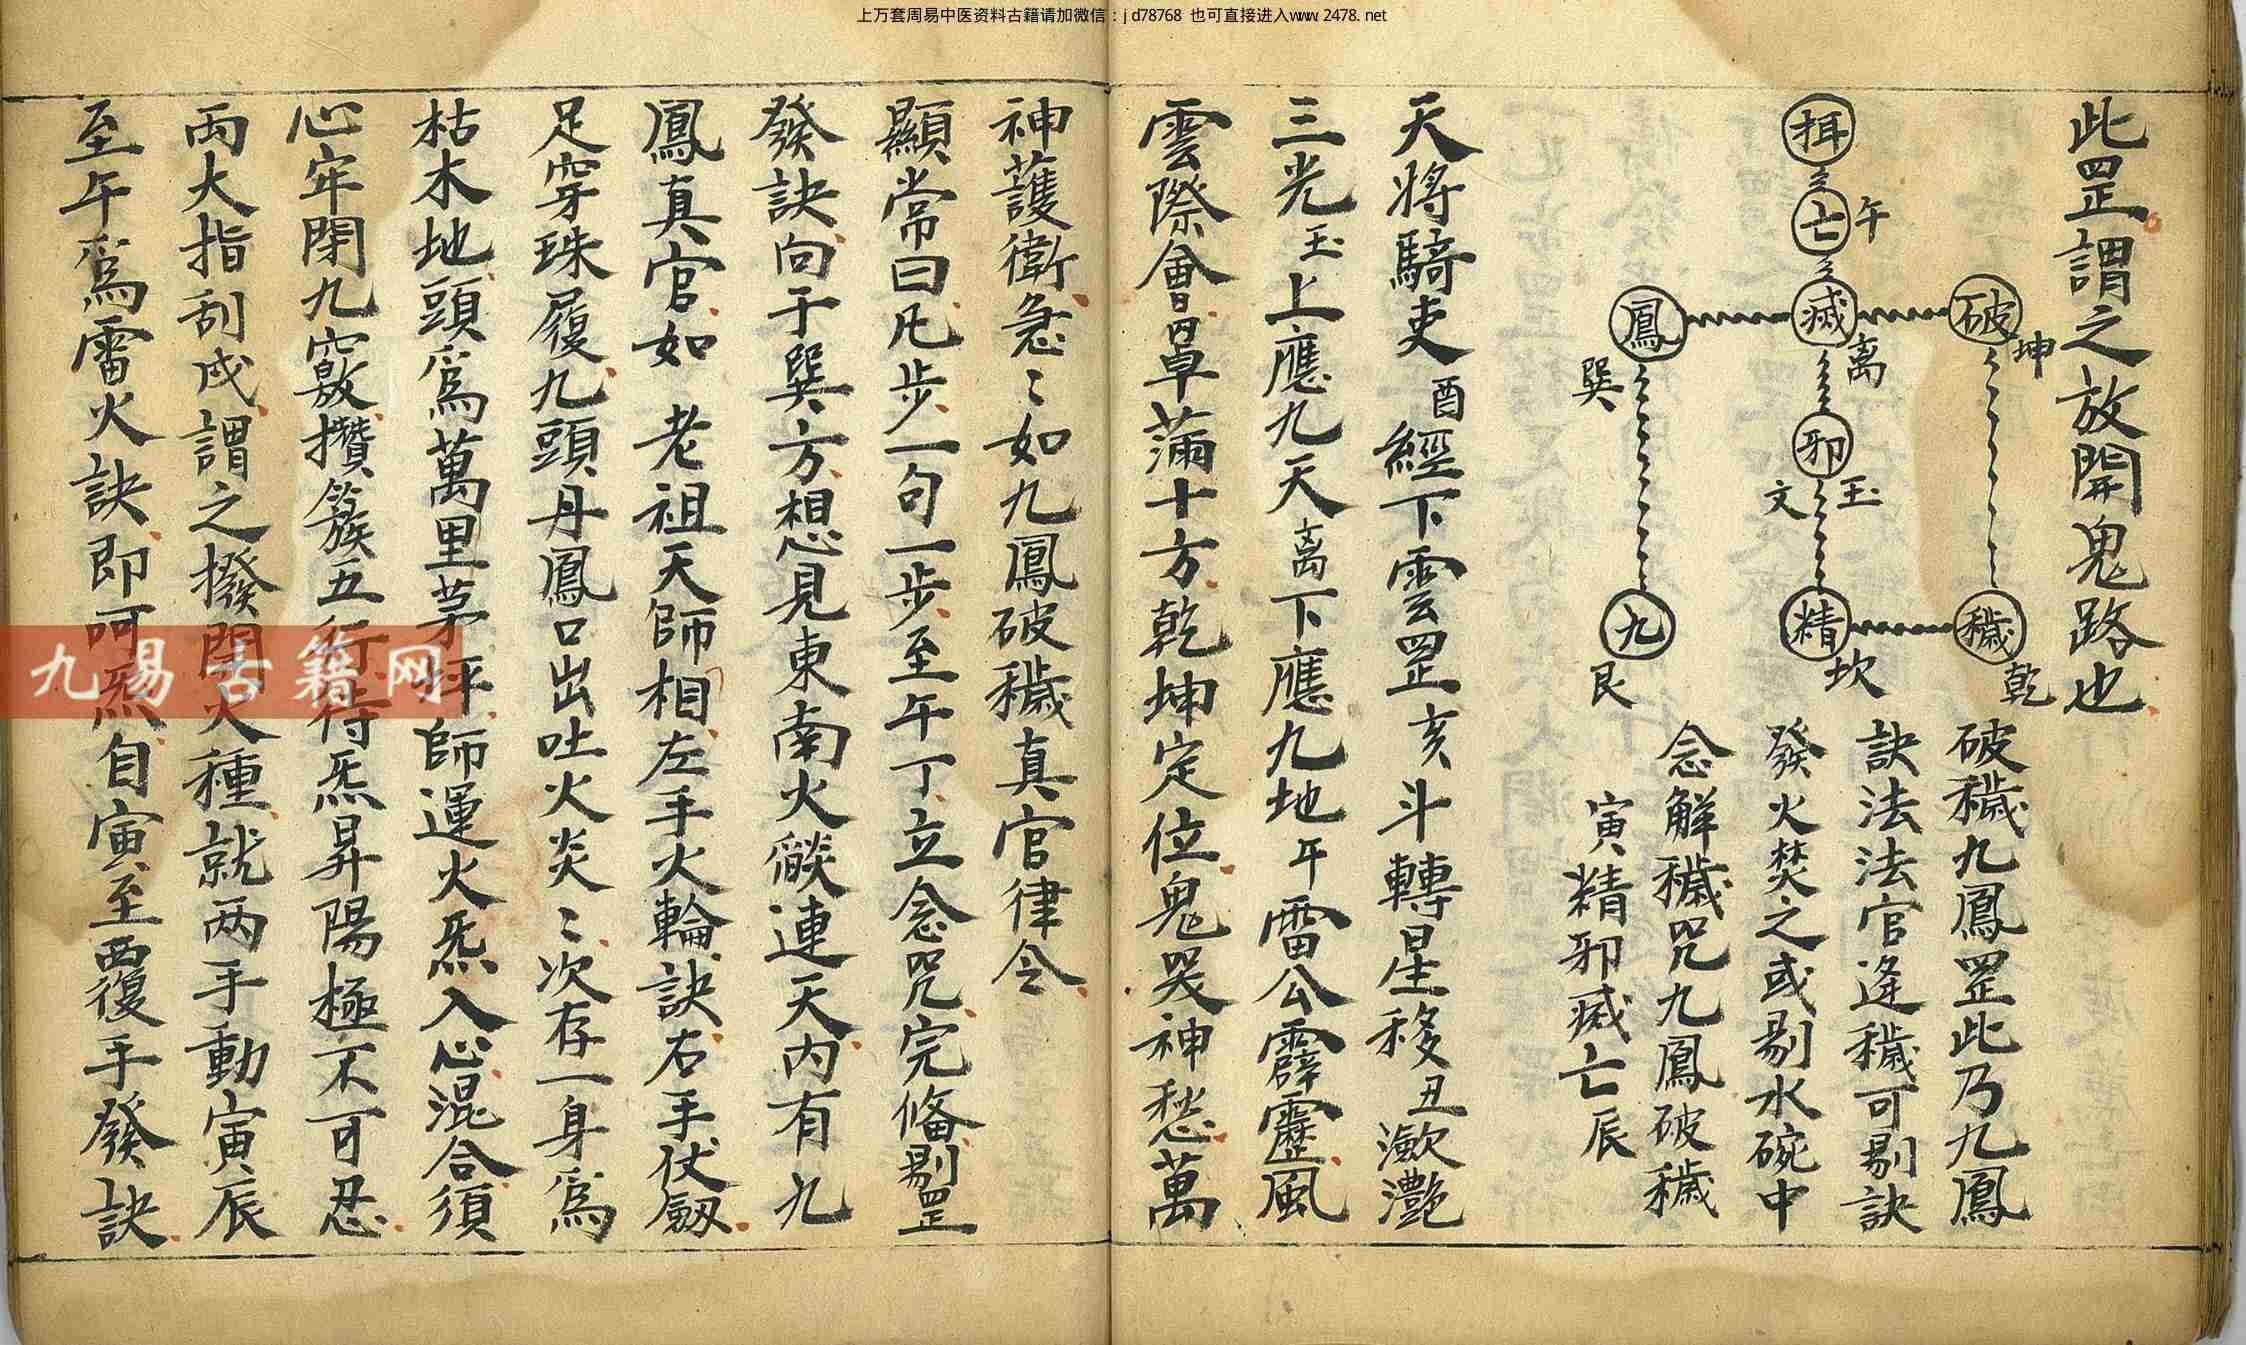 上万套周易中医资料古籍请加微信：jd78768 也可直接进入www.2478.net
此罡謂之放開鬼路也
揖
亡 午
鳳 滅 破
巽 离 坤
邪
文 玉
九 精 穢
艮 坎 乾
破穢九鳳罡此乃九鳳
訣法法官逢穢可剔訣
發火焚之或剔水碗中
念解穢咒九鳳破穢
寅精邪滅亡辰
天將騎吏酉經下雲罡亥斗轉星移丑瀲灔
三光玉上應九天离下應九地午雷公霹靂風
雲際會日罩滿十方乾坤定位鬼哭神愁萬
神護衛急〻如九鳳破穢真官律令
顯常曰凡步一句一步至午丁立念咒完俻剔罡
發訣向于巽方想見東南火燄連天内有九
鳳真官如 老祖天師相左手火輪訣右手仗劔
足穿珠履九頭丹鳳口出吐火炎〻次存一身爲
枯木地頭爲萬里茅坪師運火炁入心混合須
心牢閉九竅攅簇五行待炁昇陽極不可忍
两大指刮戌謂之撥開火種就两手動寅辰
至午爲雷火訣即呵炁自寅至酉覆手發訣
九易古籍网